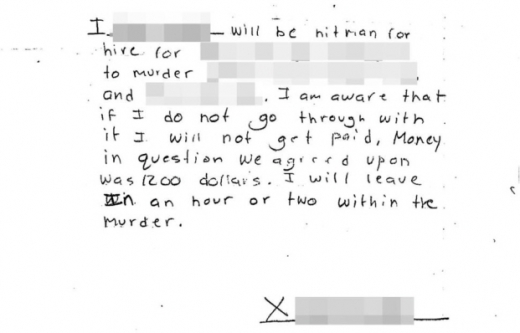 I will be hitman for
hire for
to murder
and . I am aware that
if I do not go through with
it I will not get paid, Money
in question we agreed upon
was 1200 dollars. I will leave
in an hour or two within the
murder.
X